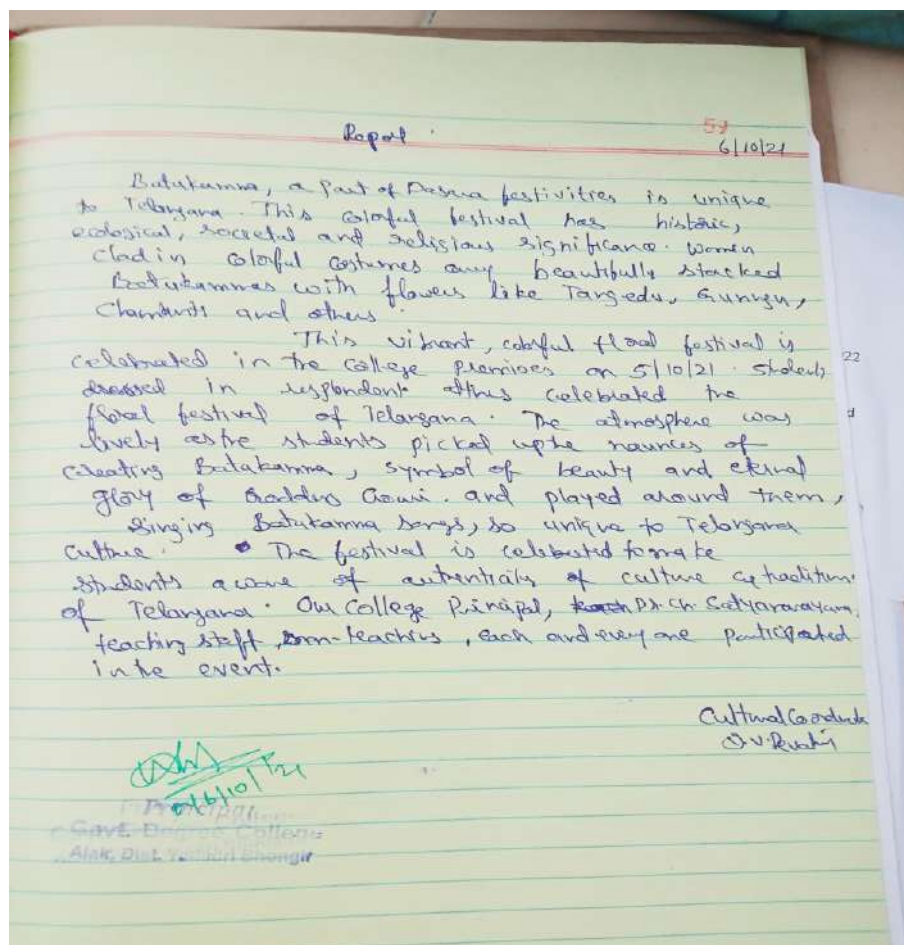 Report
51
6/10/21
Batukamna, a part of Dasara festivities is unique
to Telangana. This colorful festival has historic,
ecological, societal and religious significance. Women
clad in colorful costumes carry beautifully stacked
Batukammas with flowers like Tangedu, Gunugu,
Chamanti and others.
This vibrant, colorful floral festival is
celebrated in the college premises on 5/10/21. Students
dressed in attires celebrated the
floral festival of Telangana. The atmosphere was
lively as the students picked up the naunces of
creating Batakamna, symbol of beauty and eternal
glory of Goddess Gowri. and played around them,
singing Batukamna songs, so unique to Telangana
culture. The festival is celebrated to make
students aware of authenticity of culture & tradition
of Telangana. Our College Principal, Dr. Ch. Satyanarayana,
teaching staff, non-teachers, each and every one participated
in the event.
Cultural Coordinator
06/10/21
Principal
Govt. Degree College
Alair, Dist. Yadadri Bhongir
22
d